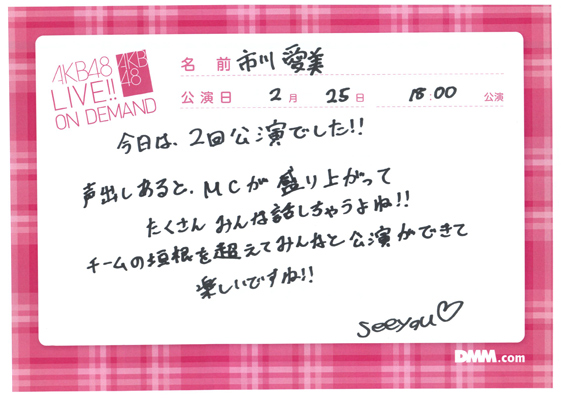 AKB48
LIVE!!
ON DEMAND
AKB
48
名 前 市川 愛美
公演日 2月 25日 18:00 公演
今日は、2回公演でした!!
声出しあると、MCが盛り上がって
たくさん みんな話しちゃうよね!!
チームの垣根を超えてみんなと公演ができて
楽しいですね!!
see you♡
DMM.com